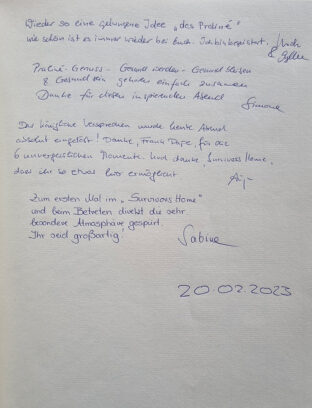 Wieder so eine gelungene Idee „des Praliné"
wie schön ist es immer wieder bei Euch. Ich bin begeistert.
Praliné-Genuss - Gesund werden - Gesund bleiben
& Gesund sein gehören einfach zusammen
Danke für diesen inspirierenden Abend
Simone
Das königliche Versprechen wurde heute Abend
absolut eingelöst! Danke, Frau Pape, für die
6 unvergesslichen Momente. Und danke, Survivors Home,
dass ihr so etwas hier ermöglicht
Zum ersten Mal im „Survivors Home"
und beim Betreten direkt die sehr
besondere Atmosphäre gespürt.
Ihr seid großartig!
Sabine
20.02.2023